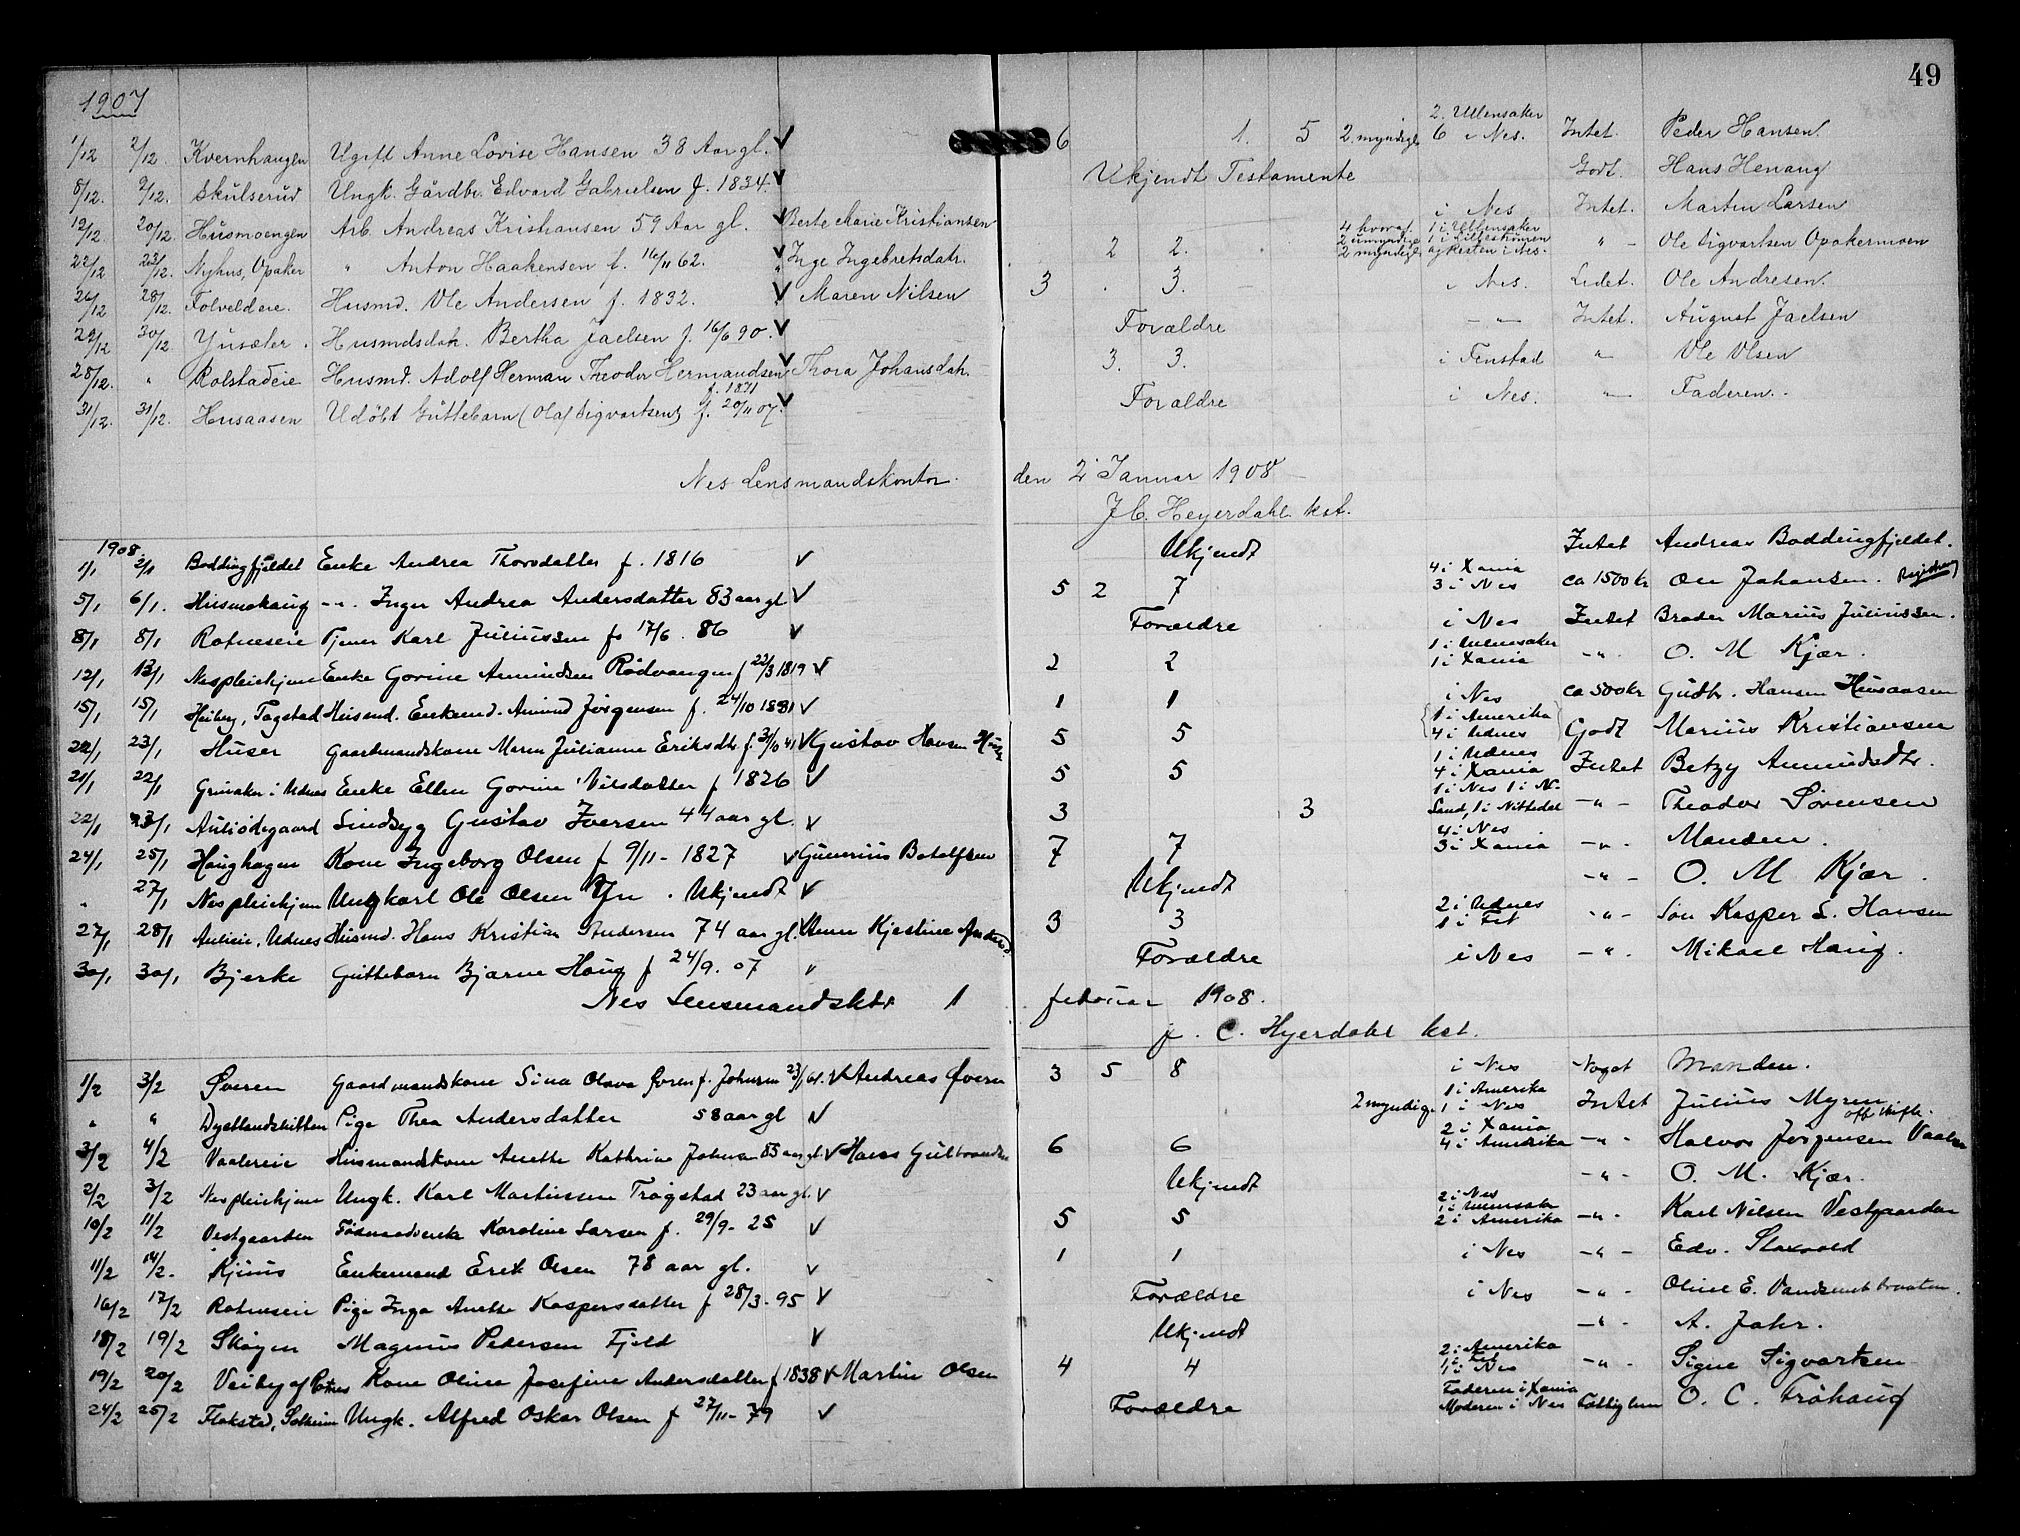 49
1907
1/12 2/12. Kvernhaugen Ugift Anne Lovise Hansen 38 Aar gl. ✓ 6 1. 5 2 myndige 2. Ullensaker 6 i Nes. Intet. Peder Hansen
8/12. 9/12. Skulserud Ungk. Gårdbr. Edvard Gabrielsen f. 1834. ✓ Ukjendt Testamente Godt. Hans Henaug
12/12. 20/12. Husmoengen Arb. Andreas Kristiansen 59 Aar gl. ✓ Berte Marie Kristiansen i Nes Intet. Martin Larsen
22/12 23/12. Nyhus, Opaker " Anton Haakensen f. 16/11 62. ✓ Inge Ingebretsdatr. 2 2. 4 hvoraf 2 umyndige 2 myndige 1 i Ullensaker 1 i Lillestrømen og Resten i Nes. " - Ole Sigvartsen Opakermoen
26/12 28/12. Folveldeie. Husmd. Ole Andersen f. 1832. ✓ Maren Nilsen 3 . 3. i Nes. Lidet. Ole Andresen.
29/12 30/12. Husmdsdatr. Bertha Jaelsen f. 16/6 90. ✓ Forældre - " - Intet. August Jaelsen
28/12. " Rolstadeie Husmd. Adolf Herman Theodor Hermandsen f. 1871 ✓ Thora Johansdatr. 3. 3. i Fenstad " Ole Olsen
31/12. 31/12. Husaasen Udøbt Guttebarn (Olaf Sigvartsen) f. 20/11 07. ✓ Forældre i Nes. " Faderen.
Nes Lensmandskontor den 2 Januar 1908
J.C. Heyerdahl kst.
1908.
1/1 2/1 Boddingfjeldet Enke Andrea Thorsdatter f. 1816 ✓ Ukjendt Intet Andreas Boddingfjeldet.
5/1 6/1. Husmohaug -"- Inger Andrea Andersdatter 83 aar gl ✓ 5 2 7 4 i Xania 3 i Nes ca 1500 kr Ole Johansen.
8/1 8/1 Rotneseie Tjener Karl Juliussen f. 17/6. 86 ✓ Forældre i Nes Intet Broder Marius Juliussen.
12/1 13/1 Nes pleiehjem Enke Gorine Amundsen Rödvangen f 22/3 1819 ✓ 2 2 1 i Ullensaker 1 i Xania -"- O. M Kjær.
15/1 15/1 Heiberg, Togstad Husmd. Enkemd. Amund Jörgensen f. 24/10 1831 ✓ 1 1 i Nes ca 500 kr Gudbr. Hansen Husaasen
22/1 23/1 Huser Gaardmandskone Maren Julianne Eriksdtr. f. 31/10 41 ✓ Gustav Hansen Huser 5 5 1 i Amerika 4 i Udnes Godt Marius Kristiansen
21/1 22/1 Grinaker i Udnes Enke Ellen Gorine Nilsdatter f 1826 ✓ 5 5 1 i Udnes 4 i Xania Intet Betzy Amundsdtr.
22/1 23/1 Auliödegaard Sindsyg Gustav Iversen 44 aar gl. ✓ 3 3 1 i Nes 1 i N. Land, 1 i Nittedal -"- Theodor Sörensen
24/1 25/1 Haughagen Kone Ingeborg Olsen f 9/11 - 1827 ✓ Gunerius Botolfsen 7 7 4 i Nes 3 i Xania -"- Manden.
" 27/1 Nes pleiehjem Ungkarl Ole Olsen Yn. Ukjendt ✓ Ukjendt -"- O. M Kjær.
27/1 28/1 Aulieie, Udnes Husmd. Hans Kristian Andersen 74 aar gl. ✓ Anne Kjestine 3 3 2 i Udnes 1 i Fet -"- Søn Kasper L. Hansen
30/1 30/1 Bjerke Guttebarn Bjarne Haug f 24/9. 07 " Forældre i Nes -"- Mikael Haug.
Nes Lensmandsktr 1 februar 1908.
J. C. Hyerdahl kst.
1/2 3/2 Øveren Gaardmandskone Sina Olava Øveren f. Johnsen 23/1 61. ✓ Andreas Øveren 3 5 8 i Nes Noget Manden.
" " Dystlandshitten Pige Thea Andersdatter 58 aar gl ✓ 2 myndige. 1 i Amerika 1 i Nes Intet Julius Myren
3/2 4/2 Vaalereie Husmandskone Anette Kathrine Johnsen 83 aar gl. ✓ Hans Gulbrandsen 6 6 2 i Xania 4 i Amerika -"- Halvor Jörgensen Vaaler
2/2 3/2 Nes pleiehjem Ungk. Karl Martinssen Trögstad 23 aar gl. ✓ Ukjendt -"- O. M. Kjær.
10/2 11/2 Vestgaarden Føderaadsenke Karoline Larsen f. 29/9 - 25 ✓ 5 5 2 i Nes 1 i Ullensaker 2 i Amerika -"- Karl Nilsen Vestgaarden
11/2 14/2. Kjuus Enkemand Erik Olsen 78 aar gl. ✓ 1 1 i Nes -"- Edv. Slaavold
16/2 17/2 Rotneseie Pige Inga Anette Kaspersdatter f 28/3. 95 ✓ Forældre i Nes -"- Oline E. Vandsembbraaten.
18/2 19/2 Skögen Magnus Pedersen Fjeld ✓ Ukjendt -"- A. Jahr.
19/2 20/2 Veiby af Rotnes Kone Oline Josefine Andersdatter f 1838 ✓ Martin Olsen 4 4 2 i Amerika 1 i Fet 1 i Nes -"- Signe Sigvartsen
24/2 25/2 Flakstad, Ungk. Alfred Oskar Olsen f 27/11 - 79 ✓ Forældre Faderen i Xania Moderen i Nes Fattiglem O. C. Fröhaug